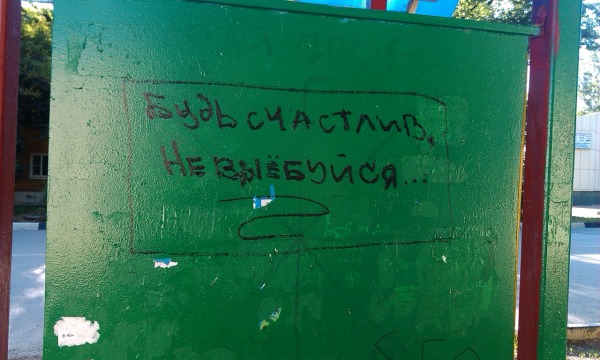 Будь счастлив,
Не выёбуйся...